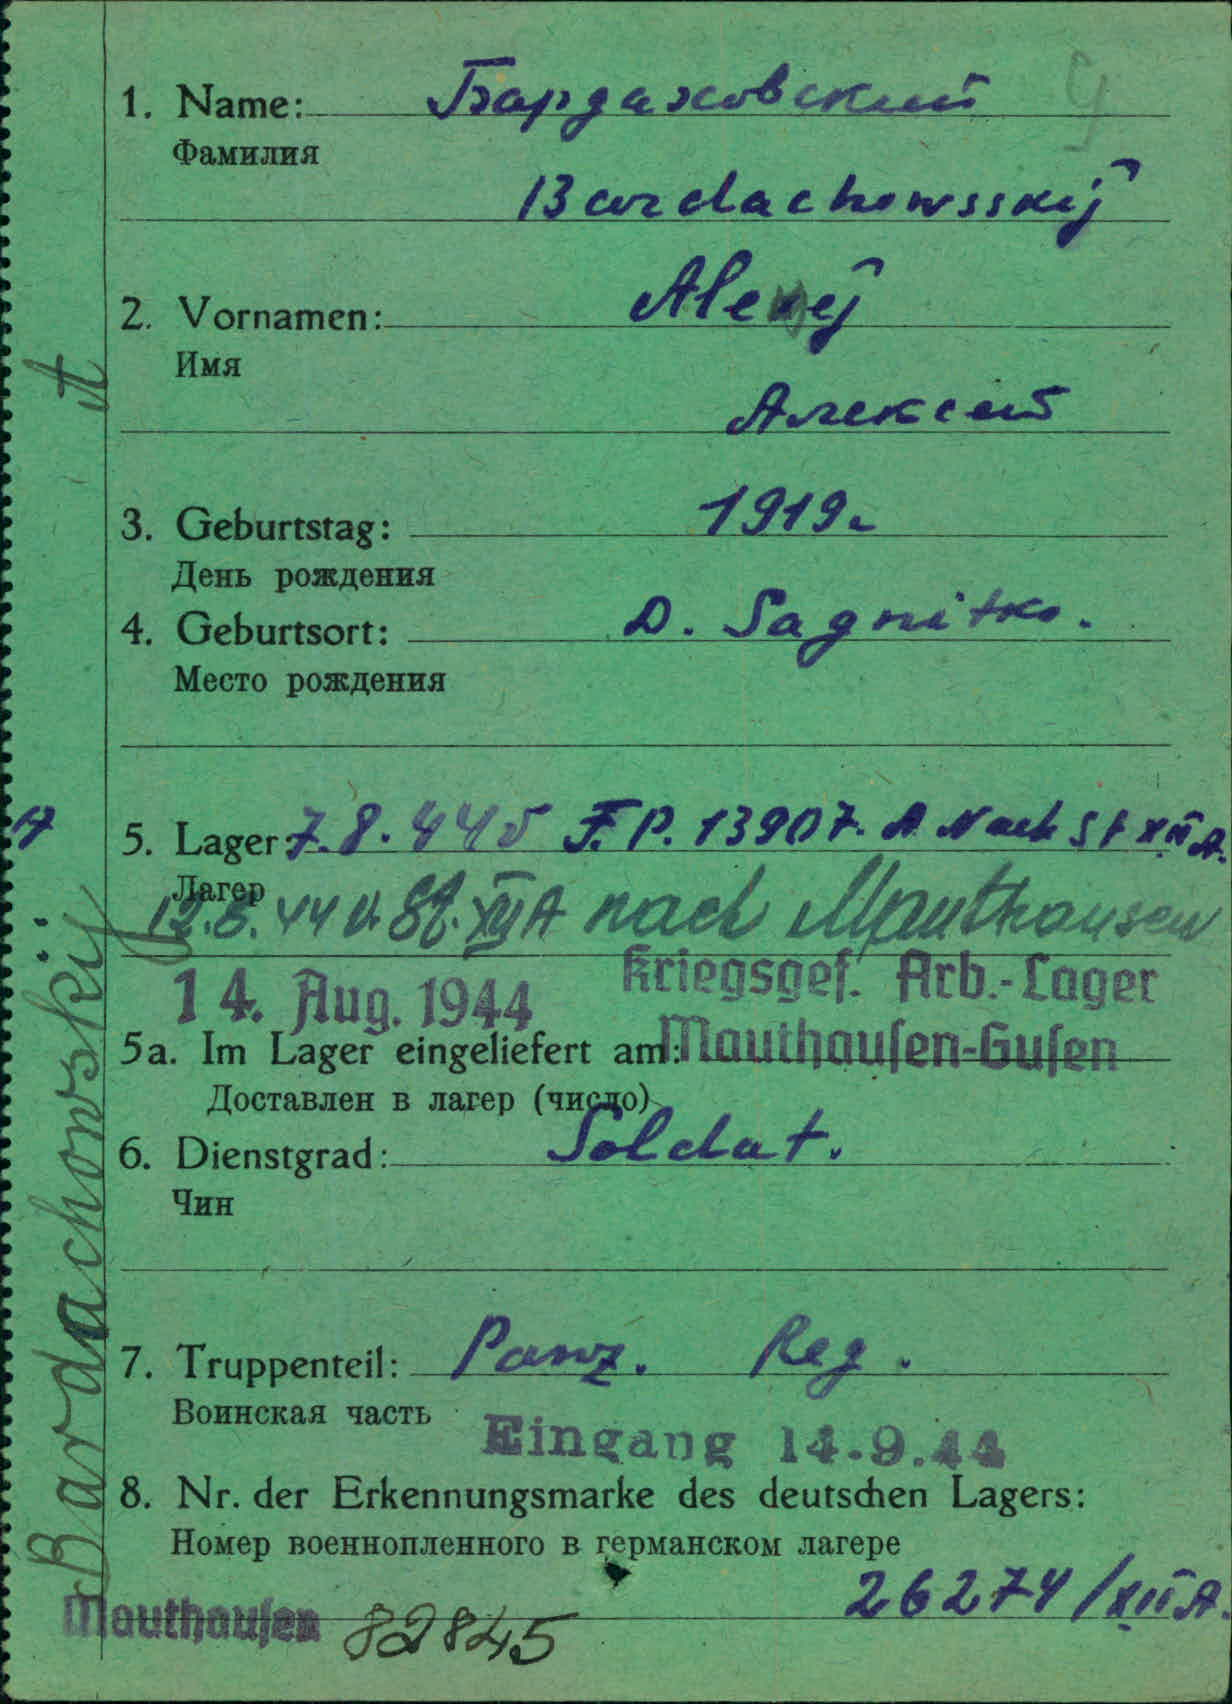 1. Name: Бардаховский
Фамилия
Bardachowsskij
2. Vornamen: Alexej
Имя
Алексей
3. Geburtstag: 1919г
День рождения
4. Geburtsort: D. Sagnitko.
Место рождения
17
5. Lager: 7.8.44 v F.P. 13907. A Nach St XII A.
Лагер
12.8.44 v. St. XII A nach Mauthausen
14. Aug. 1944 Kriegsgef. Arb.-Lager
Mauthausen-Gusen
5a. Im Lager eingeliefert am:
Доставлен в лагер (число)
6. Dienstgrad: Soldat.
Чин
7. Truppenteil: Panz. Reg.
Воинская часть
Eingang 14.9.44
8. Nr. der Erkennungsmarke des deutschen Lagers:
Номер военнопленного в германском лагере
26274/XII A.
Mauthausen 82845
Bardachowskij A